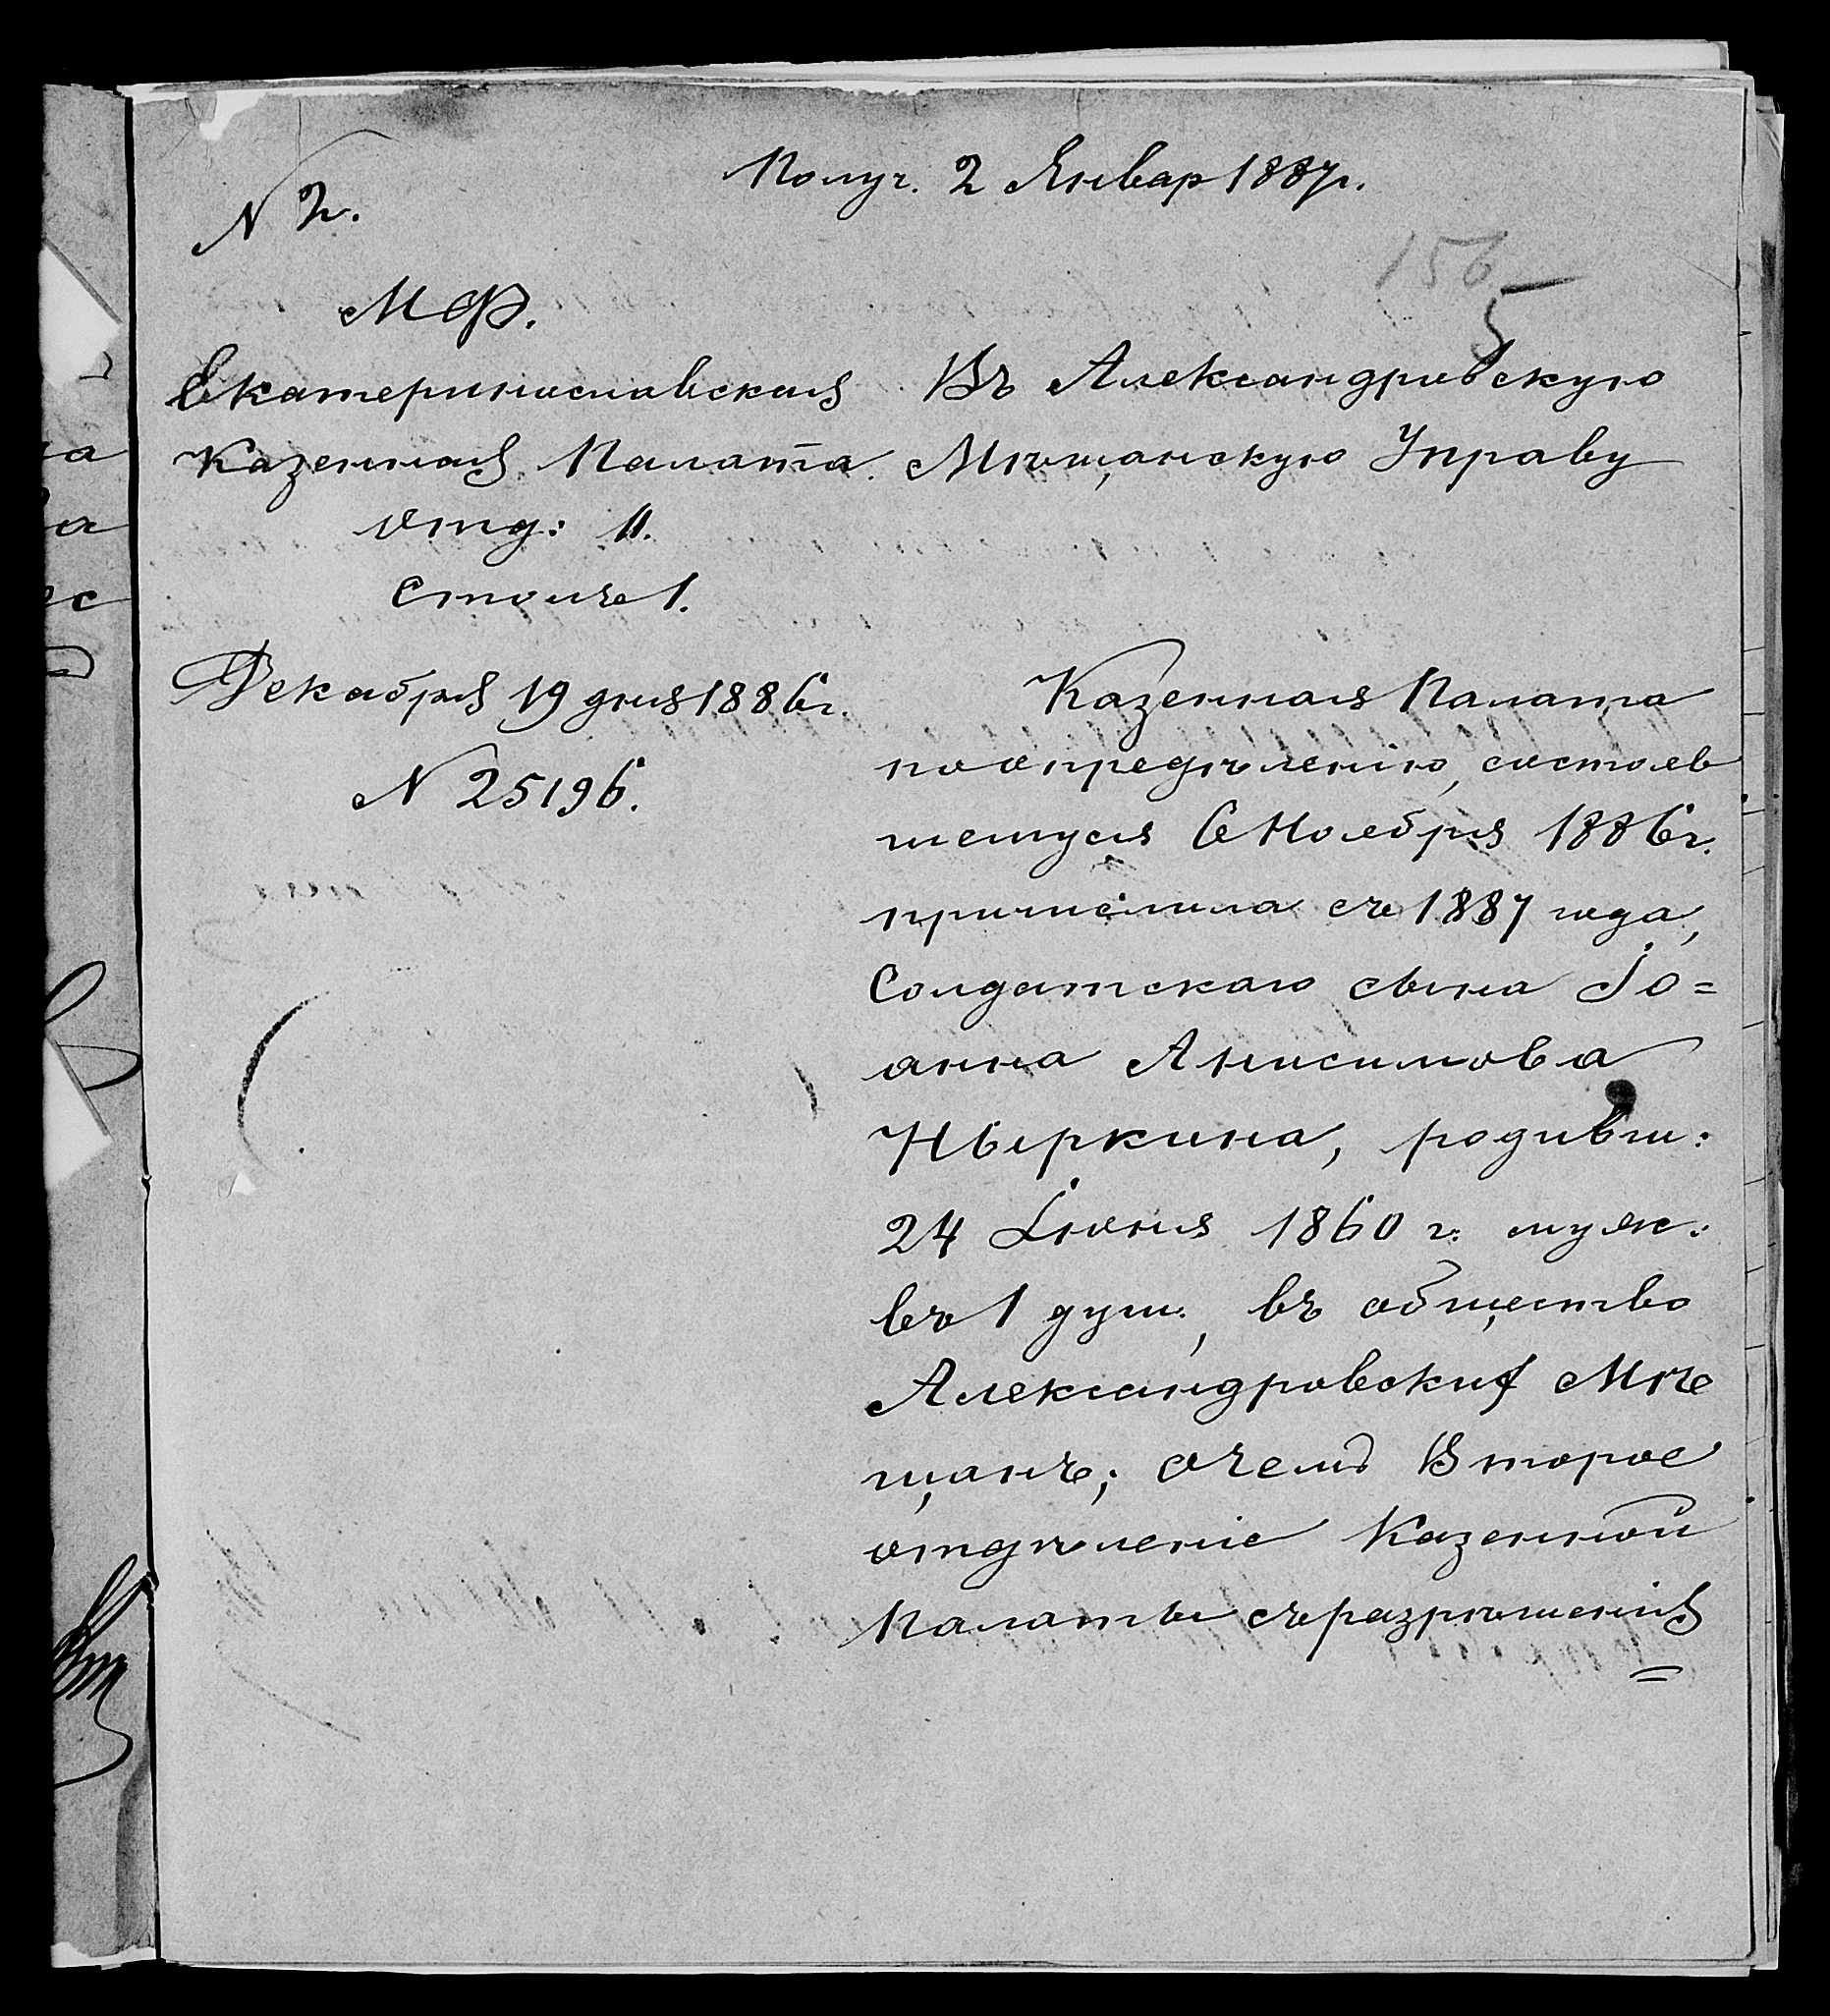 Получ. 2 Январ 1887г.
N 2.
156
5
М Ф.
Екатеринославская
Казенная Палата.
Отд: II.
Столъ 1.
Декабря 19 дня 1886г.
N 25196.
Въ Александровскую
Мѣщанскую Управу
Казенная Палата
по опредѣленію, состояв
шемуся 6 Ноября 1886г.
причислила съ 1887 года,
Солдатскаго сына Іо=
анна Анисимова
Ныркина, родивш:
24 Іюня 1860 г. муж:
въ 1 душ., въ общество
Александровских Мѣ
щанъ; о чемъ Второе
отдѣленіе Казенной
Палаты съ разрѣшенія
=